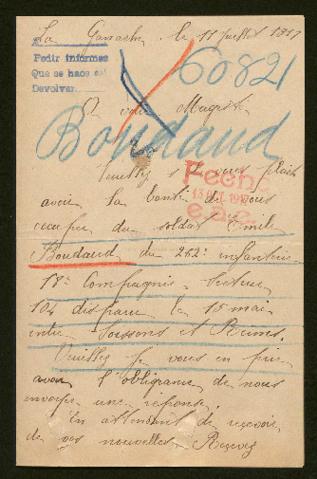 La Garnache, le 11 Juillet 1917
6082
Pedir informes
Que se hace así
Devolver
A votre Majesté
Boudaud
Veuillez s'il vous plaît
Fecha
avoir la bonté de vous
13 JUL 1917
occuper du soldat Emile
Boudaud du 262e infanterie
18e Compagnie Secteur
104 disparu le 15 mai
entre Soissons et Reims.
Veuillez je vous en prie
avoir l'obligeance de nous
envoyer une réponse.
En attendant de recevoir
de vos nouvelles Recevez